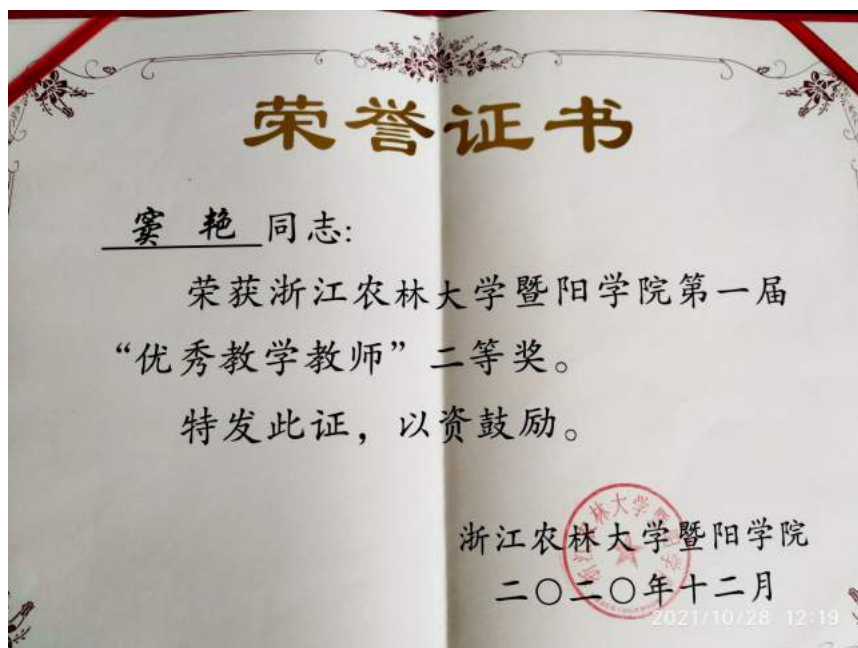 荣誉证书
窦 艳 同志:
荣获浙江农林大学暨阳学院第一届
“优秀教学教师”二等奖。
特发此证，以资鼓励。
浙江农林大学暨阳学院
二〇二〇年十二月
浙江农林大学暨阳学院
2021/10/28 12:19